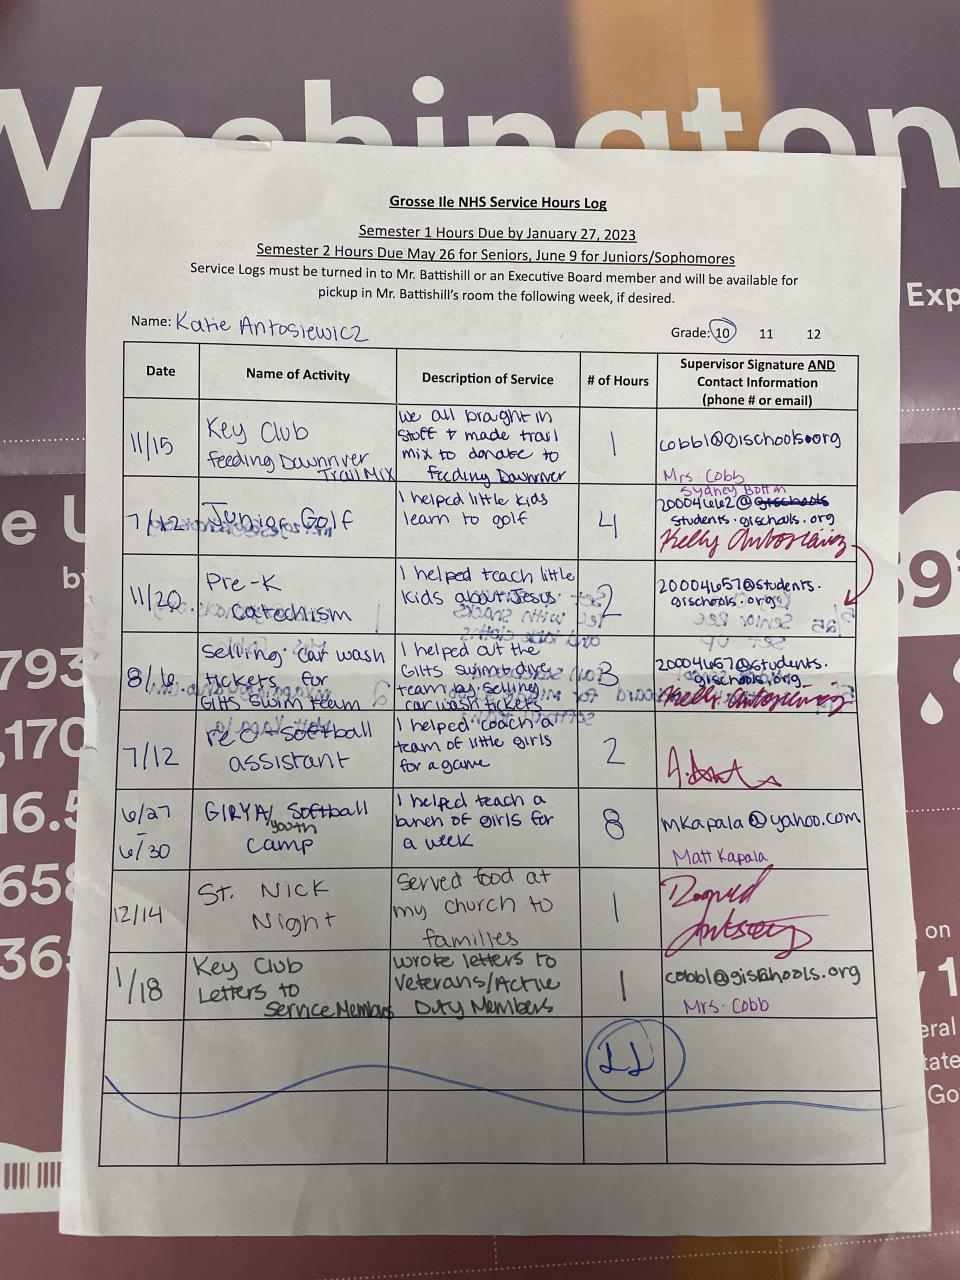 Washington
Exp
Grosse Ile NHS Service Hours Log
Semester 1 Hours Due by January 27, 2023
Semester 2 Hours Due May 26 for Seniors, June 9 for Juniors/Sophomores
Service Logs must be turned in to Mr. Battishill or an Executive Board member and will be available for
pickup in Mr. Battishill's room the following week, if desired.
Name: Katie Antosiewicz
Grade: 10 11 12
Date
Name of Activity
Description of Service
# of Hours
Supervisor Signature AND
Contact Information
(phone # or email)
11/15
Key Club
Feeding Downriver
Trail Mix
we all brought in
stuff + made trail
mix to donate to
Feeding Downriver
1
cobbl@gischools.org
Mrs. Cobb
7/12
Junior Golf
I helped little kids
learn to golf
4
Sydney
20004662@gischools
students.gischools.org
Kelly Antosiewicz
11/20
Pre-K
Catechism
I helped teach little
kids about Jesus
2
20004657@students.
gischools.org
8/6
Selling car wash
tickets for
GIHS swim team
I helped out the
GIHS swim + dive
team by selling
car wash tickets
3
20004657@students.
gischools.org
Kelly Antosiewicz
7/12
rec softball
assistant
I helped coach a
team of little girls
for a game
2
6/27
-
6/30
GIRYA Softball
youth
Camp
I helped teach a
bunch of girls for
a week
8
mkapala@yahoo.com
Matt Kapala
12/14
St. Nick
Night
Served food at
my church to
families
1
1/18
Key Club
Letters to
Service Members
wrote letters to
Veterans/Active
Duty Members
1
cobbl@gischools.org
Mrs. Cobb
22
793
,170
16.5
658
365
on